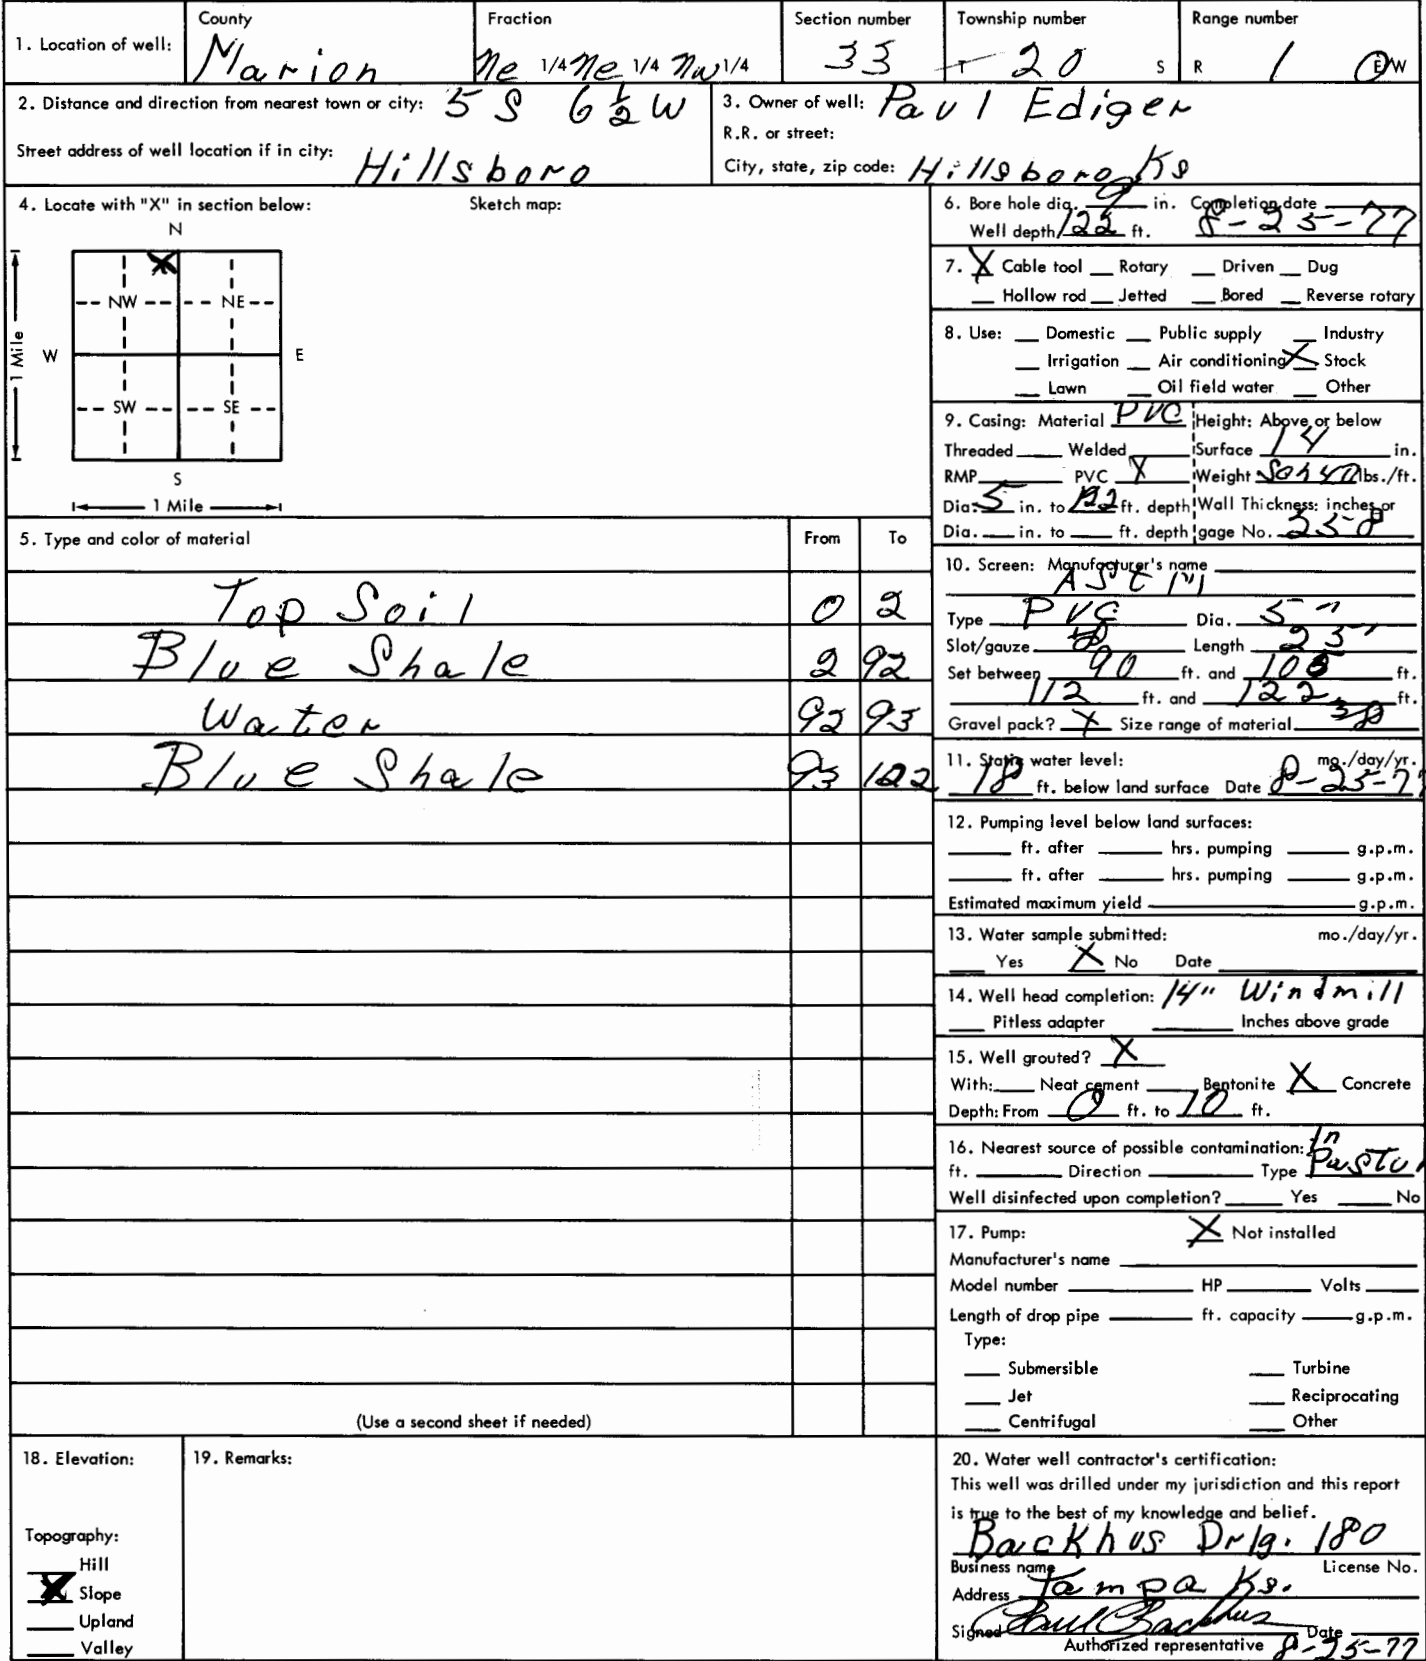 1. Location of well: County Marion Fraction Ne 1/4 Ne 1/4 Nw 1/4 Section number 33 Township number T 20 S Range number R 1 E/W
2. Distance and direction from nearest town or city: 5 S 6 1/2 W
Street address of well location if in city: Hillsboro
3. Owner of well: Paul Ediger
R.R. or street:
City, state, zip code: Hillsboro Ks
4. Locate with "X" in section below: Sketch map:
N
X
NW NE
W E
1 Mile
SW SE
S
1 Mile
5. Type and color of material From To
Top Soil 0 2
Blue Shale 2 92
Water 92 93
Blue Shale 93 122
(Use a second sheet if needed)
6. Bore hole dia. 9 in. Completion date
Well depth 122 ft. 8-25-77
7. X Cable tool Rotary Driven Dug
Hollow rod Jetted Bored Reverse rotary
8. Use: Domestic Public supply Industry
Irrigation Air conditioning X Stock
Lawn Oil field water Other
9. Casing: Material PVC Height: Above or below
Threaded Welded Surface 14 in.
RMP PVC X Weight Sch 40 lbs./ft.
Dia. 5 in. to 122 ft. depth Wall Thickness: inches or
Dia. in. to ft. depth gage No. 258
10. Screen: Manufacturer's name
ASTM
Type PVC Dia. 5"
Slot/gauze Length 25'
Set between 90 ft. and 105 ft.
112 ft. and 122 ft.
Gravel pack? X Size range of material
11. Static water level: mo./day/yr.
18 ft. below land surface Date 8-25-77
12. Pumping level below land surfaces:
ft. after hrs. pumping g.p.m.
ft. after hrs. pumping g.p.m.
Estimated maximum yield g.p.m.
13. Water sample submitted: mo./day/yr.
Yes X No Date
14. Well head completion: 14" Windmill
Pitless adapter Inches above grade
15. Well grouted? X
With: Neat cement Bentonite X Concrete
Depth: From 0 ft. to 10 ft.
16. Nearest source of possible contamination: In
ft. Direction Type Pastur
Well disinfected upon completion? Yes No
17. Pump: X Not installed
Manufacturer's name
Model number HP Volts
Length of drop pipe ft. capacity g.p.m.
Type:
Submersible Turbine
Jet Reciprocating
Centrifugal Other
18. Elevation:
Topography:
Hill
X Slope
Upland
Valley
19. Remarks:
20. Water well contractor's certification:
This well was drilled under my jurisdiction and this report
is true to the best of my knowledge and belief.
Backhus Drlg. 180
Business name License No.
Address Tampa Ks.
Signed Paul Backhus Date
Authorized representative 8-25-77